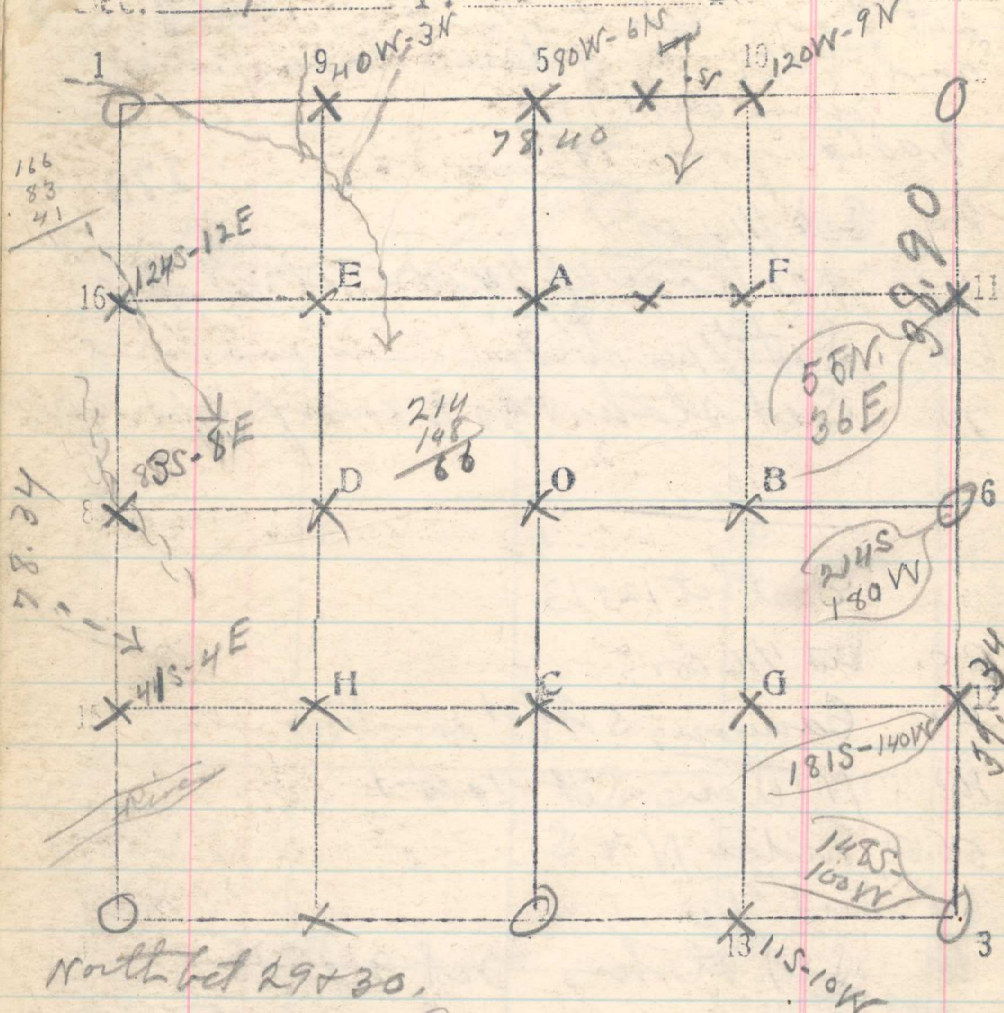 Sec.
1
19
40W-3N
5
80W-6N
10
120W-9N
78.40
166
83
41
124S-12E
16
E
A
F
11
98.90
55N.
36E
214
148
66
83S-8E
8
D
O
B
6
78.34
214S
180W
41S-4E
15
H
C
G
39.34
181S-140W
River
148S-
100W
13
11S-10W
3
North bet 29+30.